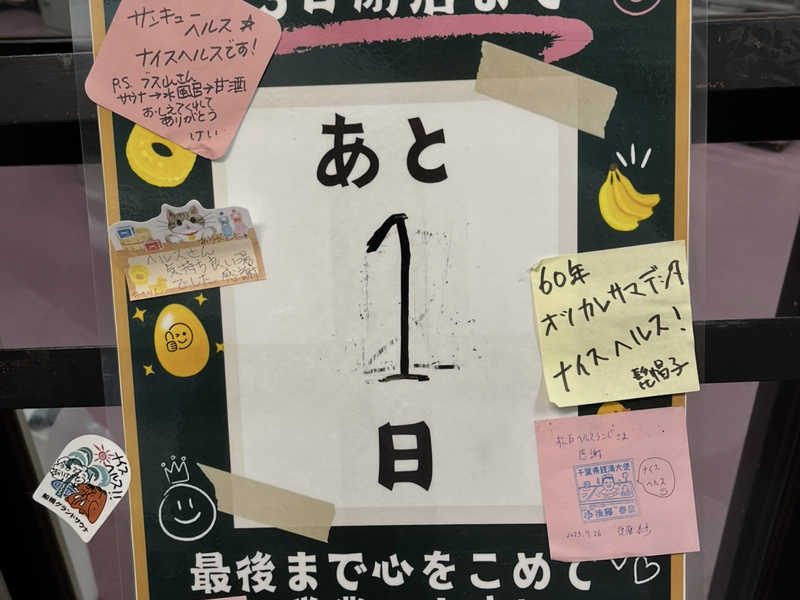 日閉店まで
サンキュー
ヘルス☆
ナイスヘルスです!
P.S. ブス山さん
サウナ→水風呂→甘酒
おしえてくれて
ありがとう
けい
あと
1
日
ヘルスさん
気持ち良い湯
でした 感謝
60年
オツカレサマデシタ
ナイスヘルス!
ナイス
ヘルス!!
船橋グランドサウナ
感謝
千葉県銭湯大使
ナイス
ヘルス
2023.9.26
最後まで心をこめて